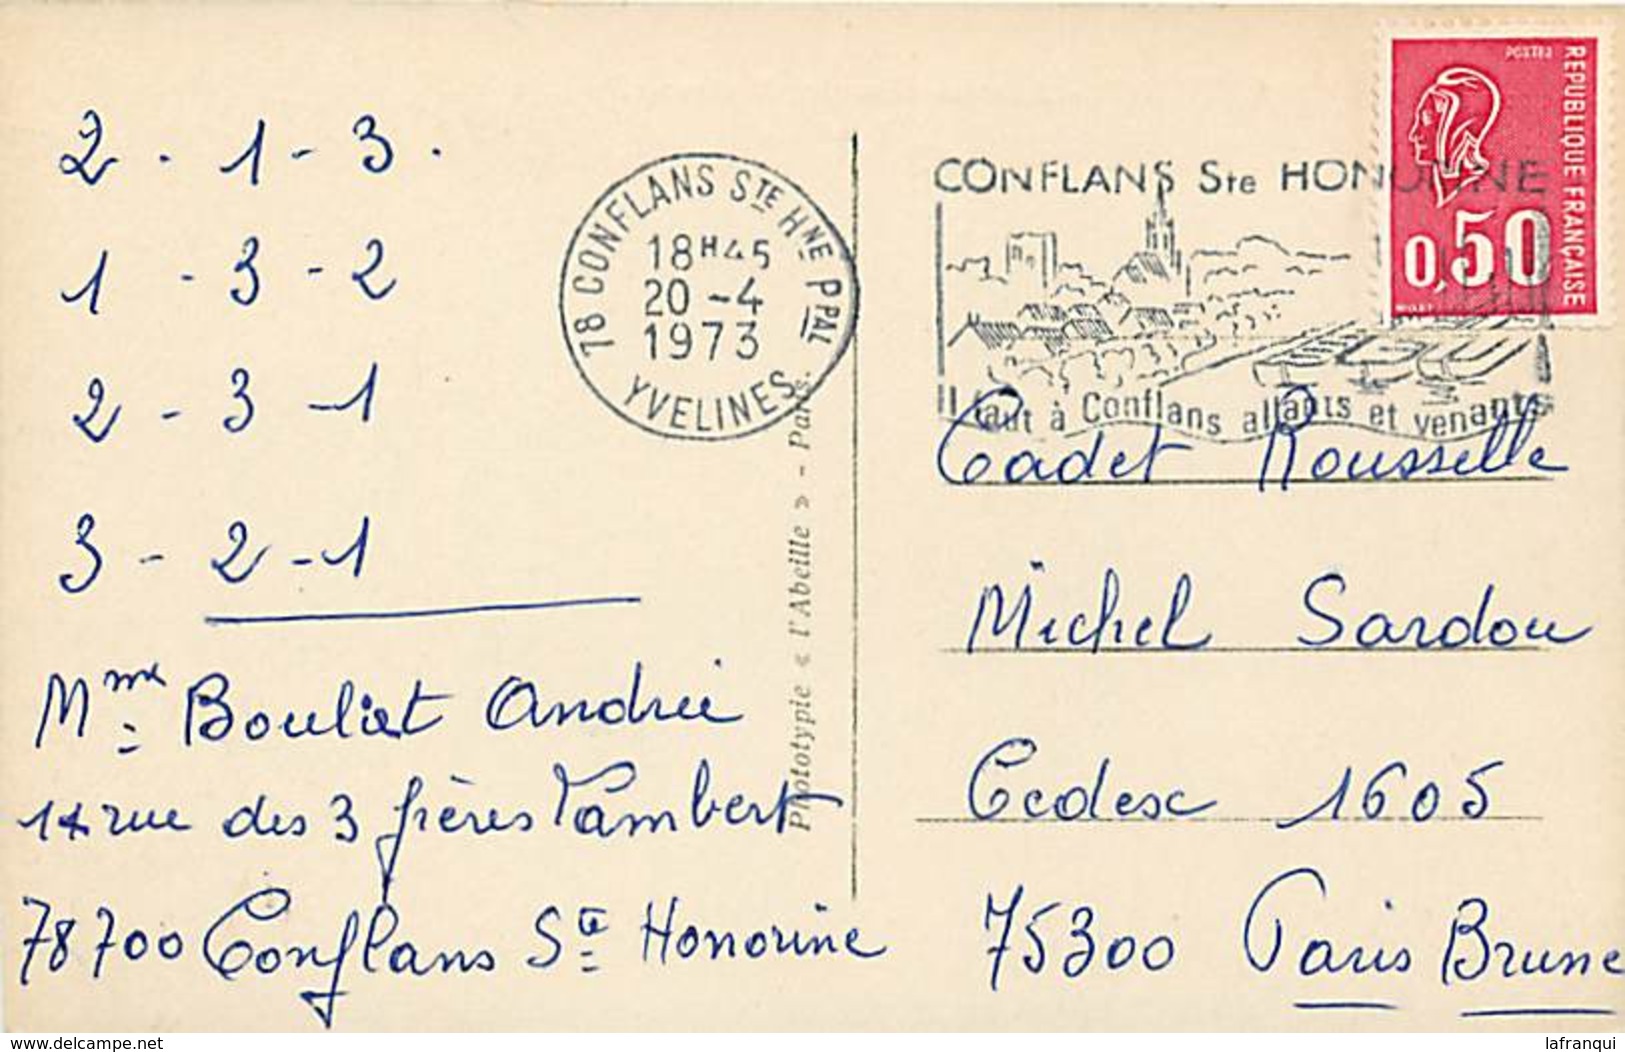 2 - 1 - 3 -
1 - 3 - 2
2 - 3 - 1
3 - 2 - 1
Mme Bouliet Andrée
rue des 3 frères Lambert
78700 Conflans Ste Honorine
78 CONFLANS STE HNE PPAL
18H45
20 - 4
1973
YVELINES
Phototypie « l'Abeille » - Paris.
CONFLANS Ste HONORINE
Il faut à Conflans allants et venants
POSTES
REPUBLIQUE FRANÇAISE
0,50
Cadet Rousselle
Michel Sardou
Cedex 1605
75300 Paris Brune
delcampe.net
lafranqui